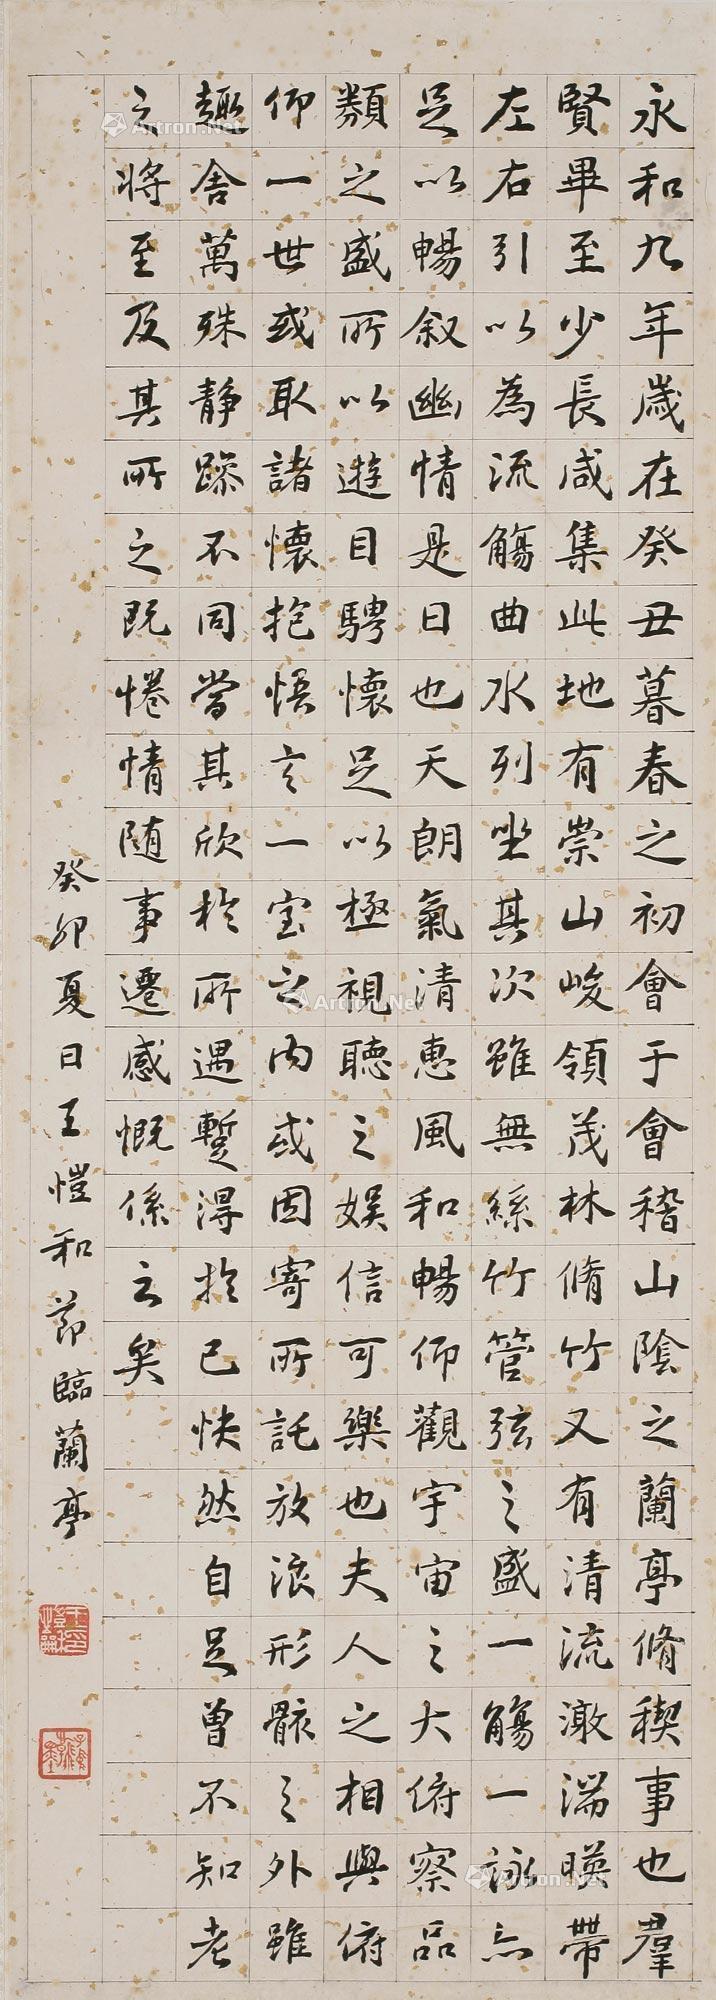 永和九年歲在癸丑暮春之初會于會稽山陰之蘭亭脩稧事也羣
賢畢至少長咸集此地有崇山峻領茂林脩竹又有清流激湍暎帶
左右引以為流觴曲水列坐其次雖無絲竹管弦之盛一觴一詠亦
足以暢叙幽情是日也天朗氣清惠風和暢仰觀宇宙之大俯察品
類之盛所以遊目騁懷足以極視聽之娛信可樂也夫人之相與俯
仰一世或取諸懷抱悟言一室之內或因寄所託放浪形骸之外雖
趣舍萬殊静躁不同當其欣於所遇蹔得於己快然自足曾不知老
之將至及其所之既惓情随事遷感慨係之矣
癸卯夏日王愷和節臨蘭亭
Artron.Net
Artron.Net
Artron.Net
Artron.Net
Artron.Net
Artron.Net